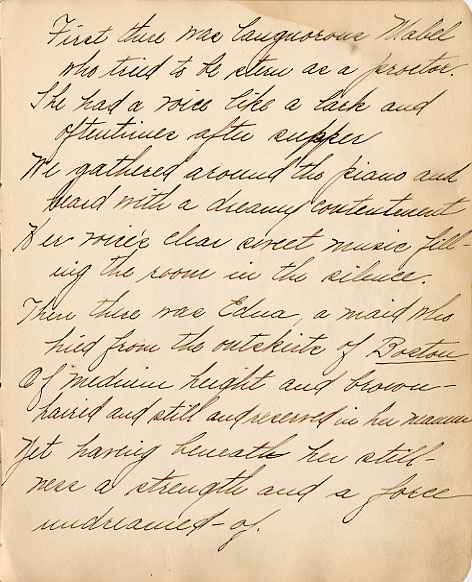 First there was languorous Mabel
who tried to be stern as a proctor.
She had a voice like a lark and
oftentimes after supper
We gathered around the piano and
heard with a dreamy contentment
Her voice's clear sweet music fill-
ing the room in the silence.
Then there was Edna, a maid who
hied from the outskirts of Boston
Of medium height and brown-
haired and still and reserved in her manner
Yet having beneath her still-
ness a strength and a force
undreamed-of.